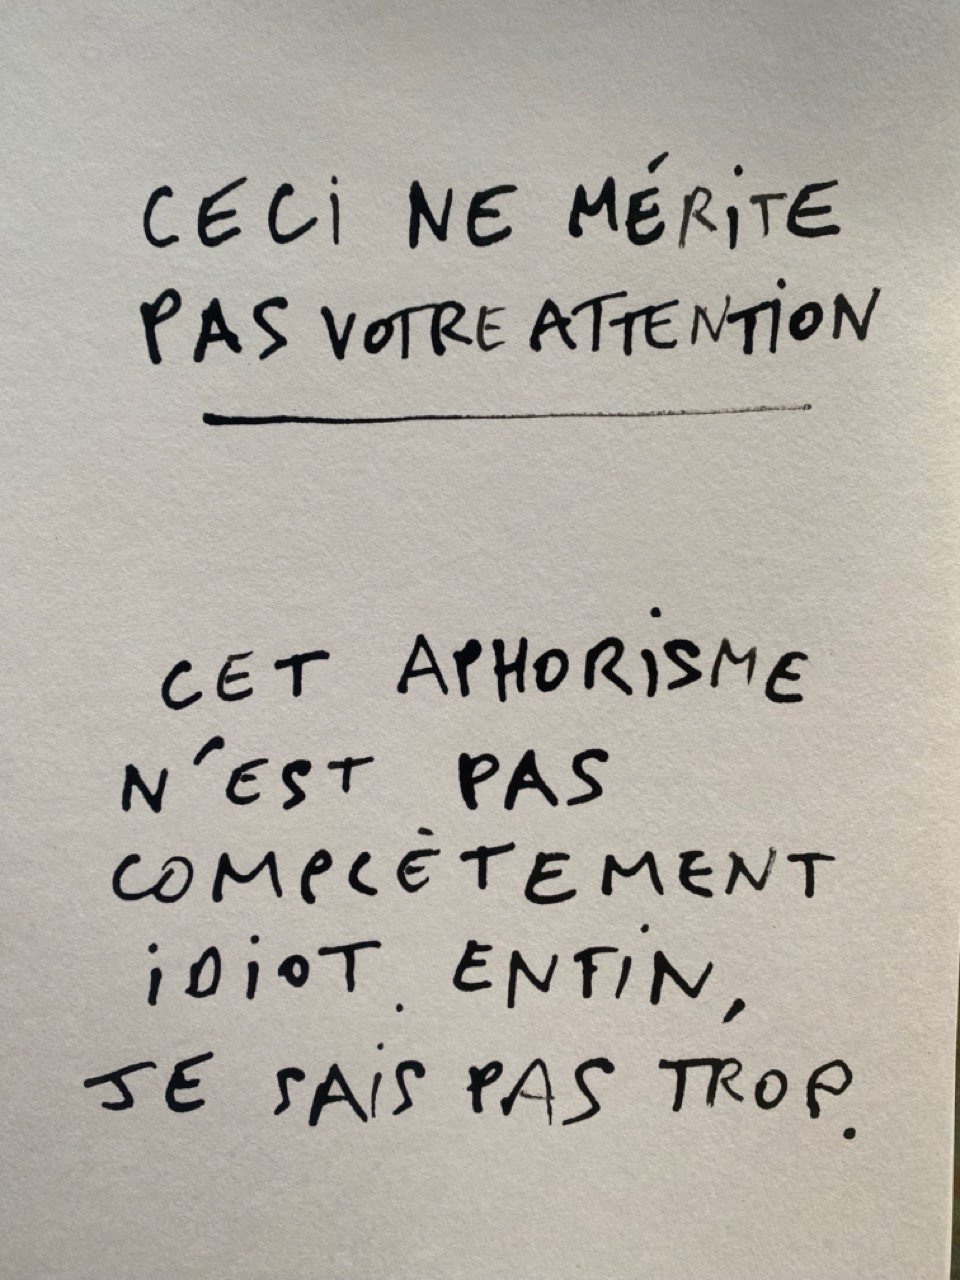 CECI NE MÉRITE
PAS VOTRE ATTENTION
CET APHORISME
N'EST PAS
COMPLÈTEMENT
IDIOT. ENFIN,
JE SAIS PAS TROP.